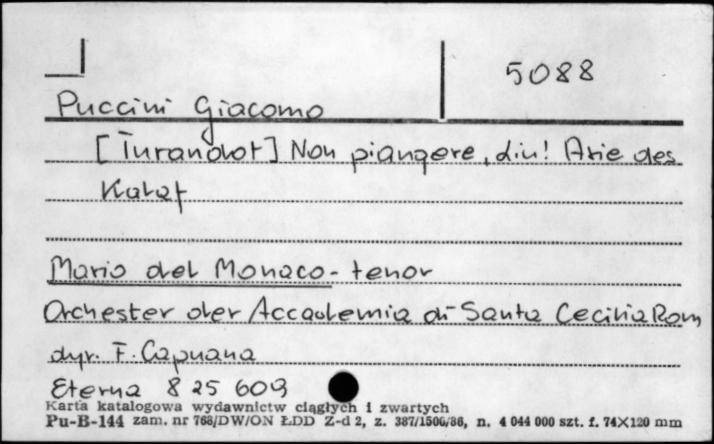 5088
Puccini Giacomo
[Turandot] Non piangere, Liu! Arie des
Kalaf
Mario del Monaco - tenor
Orchester der Accademia di Santa Cecilia Rom
dyr. F. Capuana
Eterna 8 25 609
Karta katalogowa wydawnictw ciągłych i zwartych
Pu-B-144 zam. nr 768/DW/ON ŁDD Z-d 2, z. 387/1506/86, n. 4 044 000 szt. f. 74×120 mm